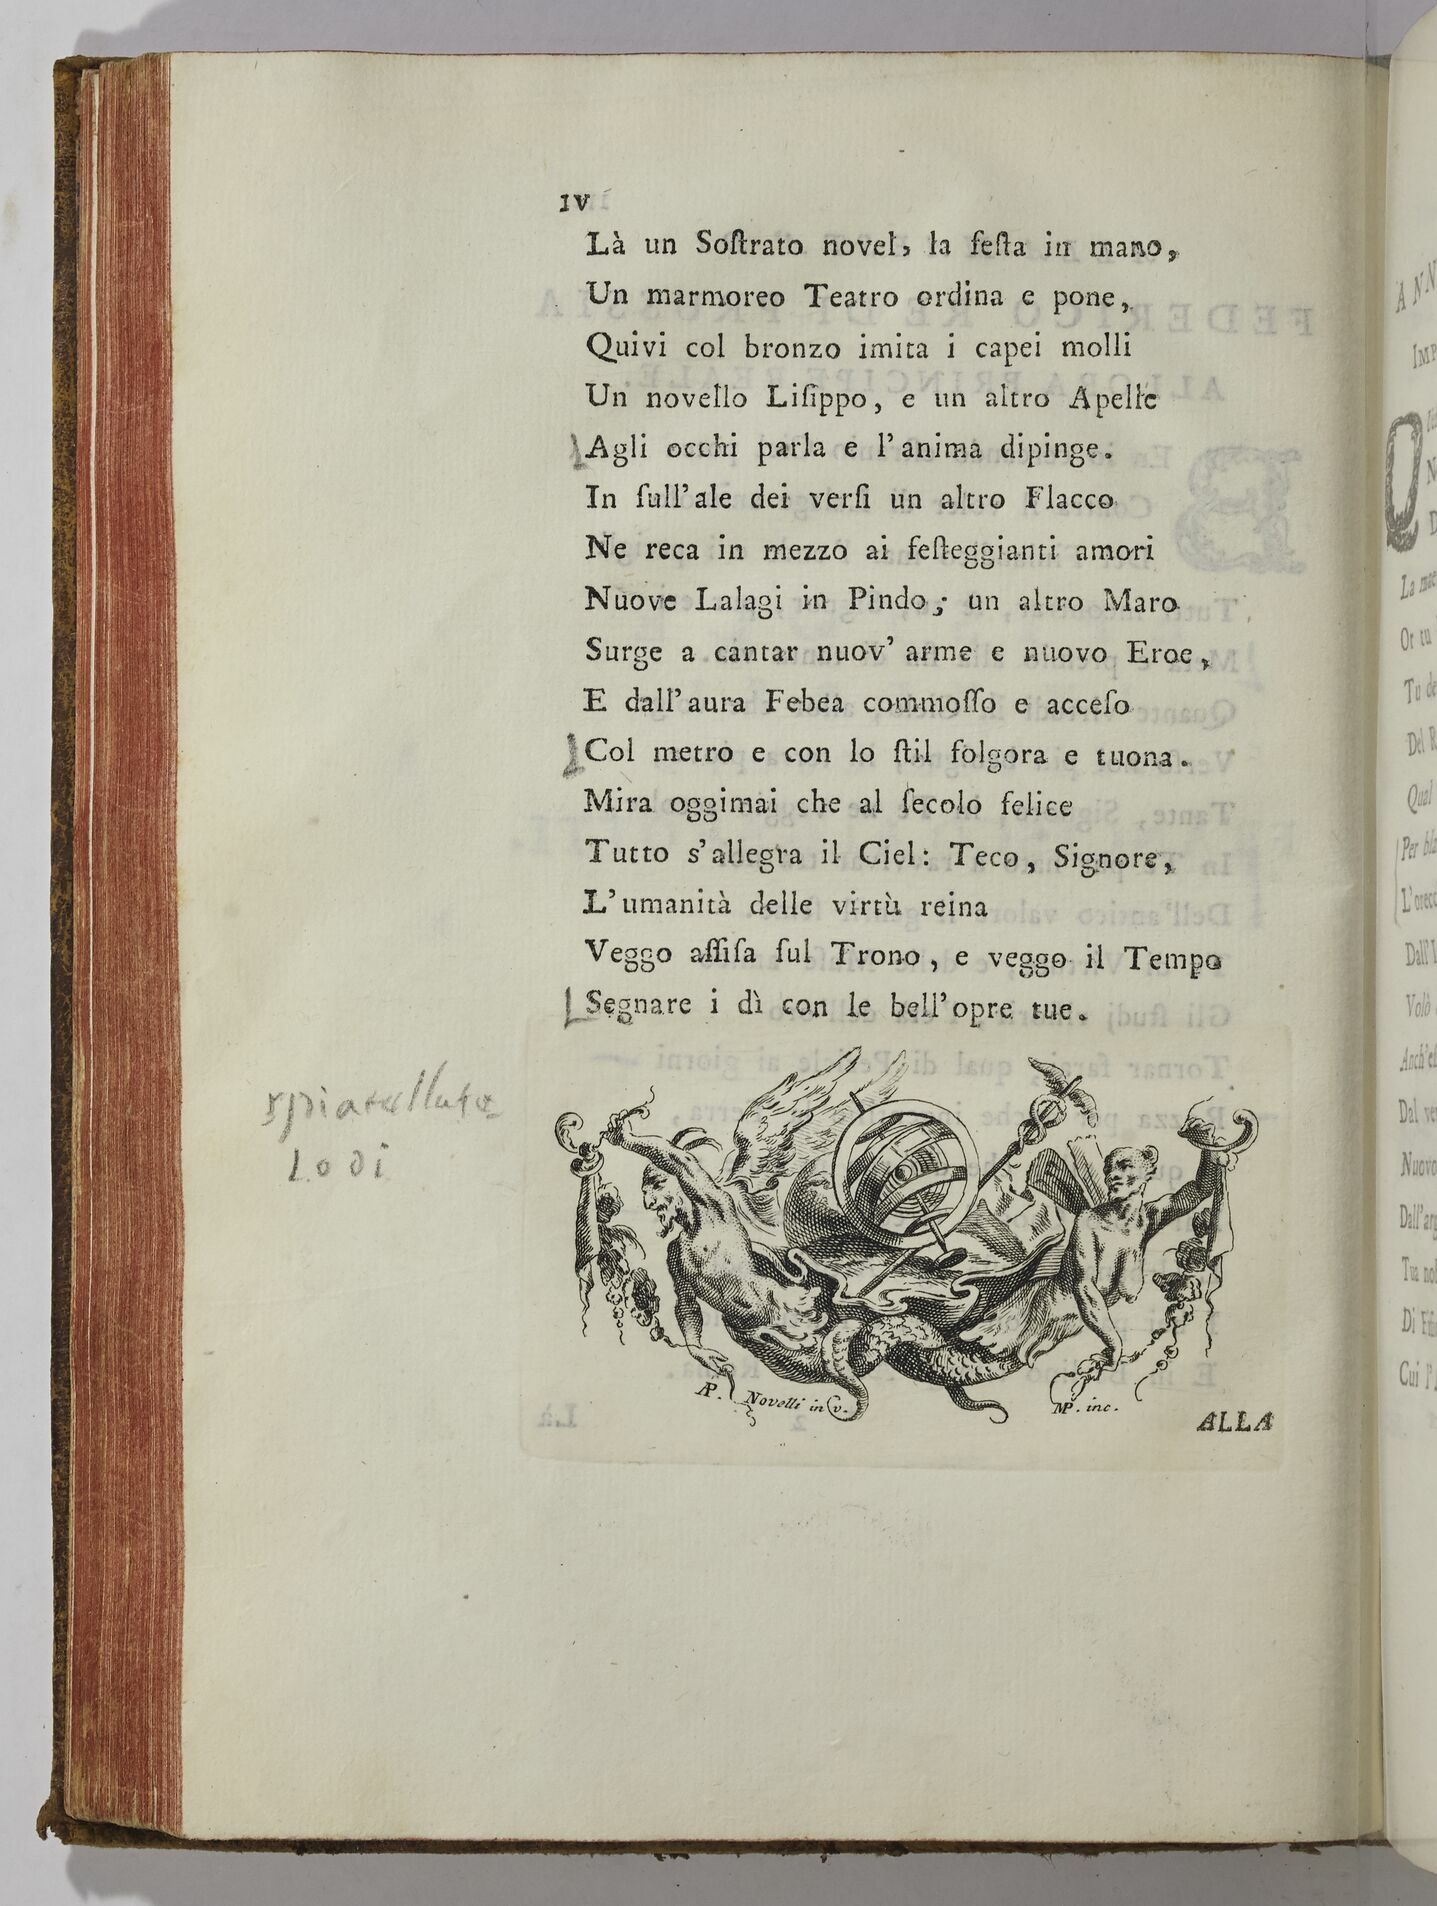 IV
Là un Soſtrato novel, la ſeſta in mano,
Un marmoreo Teatro ordina e pone,
Quivi col bronzo imita i capei molli
Un novello Liſippo, e un altro Apelle
Agli occhi parla e l'anima dipinge.
In ſull'ale dei verſi un altro Flacco
Ne reca in mezzo ai feſteggianti amori
Nuove Lalagi in Pindo; un altro Maro
Surge a cantar nuov' arme e nuovo Eroe,
E dall'aura Febea commoſſo e acceſo
Col metro e con lo ſtil folgora e tuona.
Mira oggimai che al ſecolo felice
Tutto s'allegra il Ciel: Teco, Signore,
L'umanità delle virtù reina
Veggo aſſiſa ſul Trono, e veggo il Tempo
Segnare i dì con le bell'opre tue.
lodi
AP. Novelli inv.
MP. inc.
ALLA